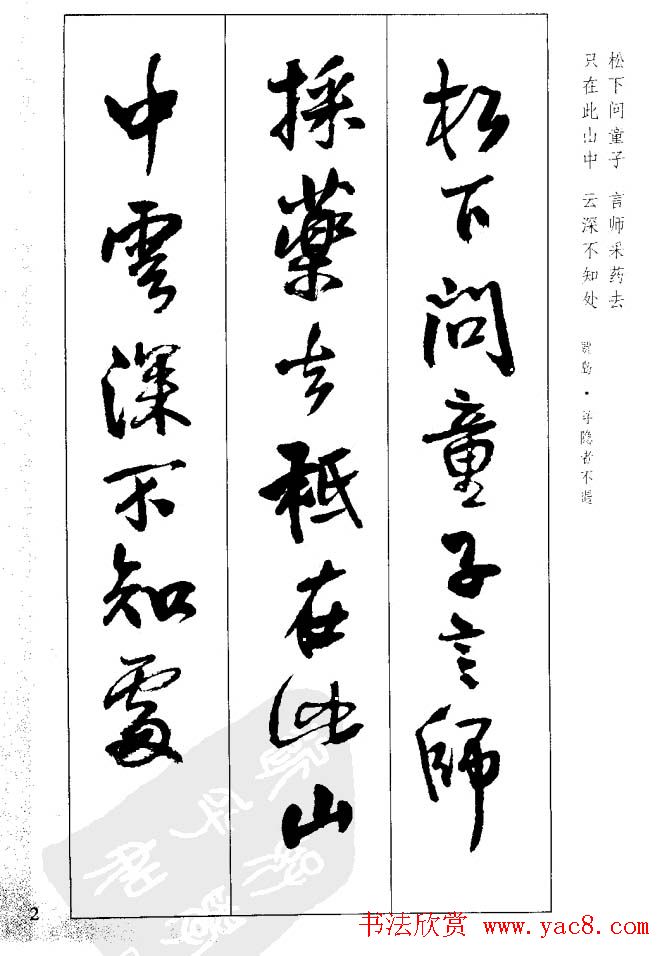 松下问童子 言师采药去
只在此山中 云深不知处 贾岛·寻隐者不遇
松下问童子言師
採藥去秖在此山
中雲深不知處
2
书法欣赏 www.yac8.com